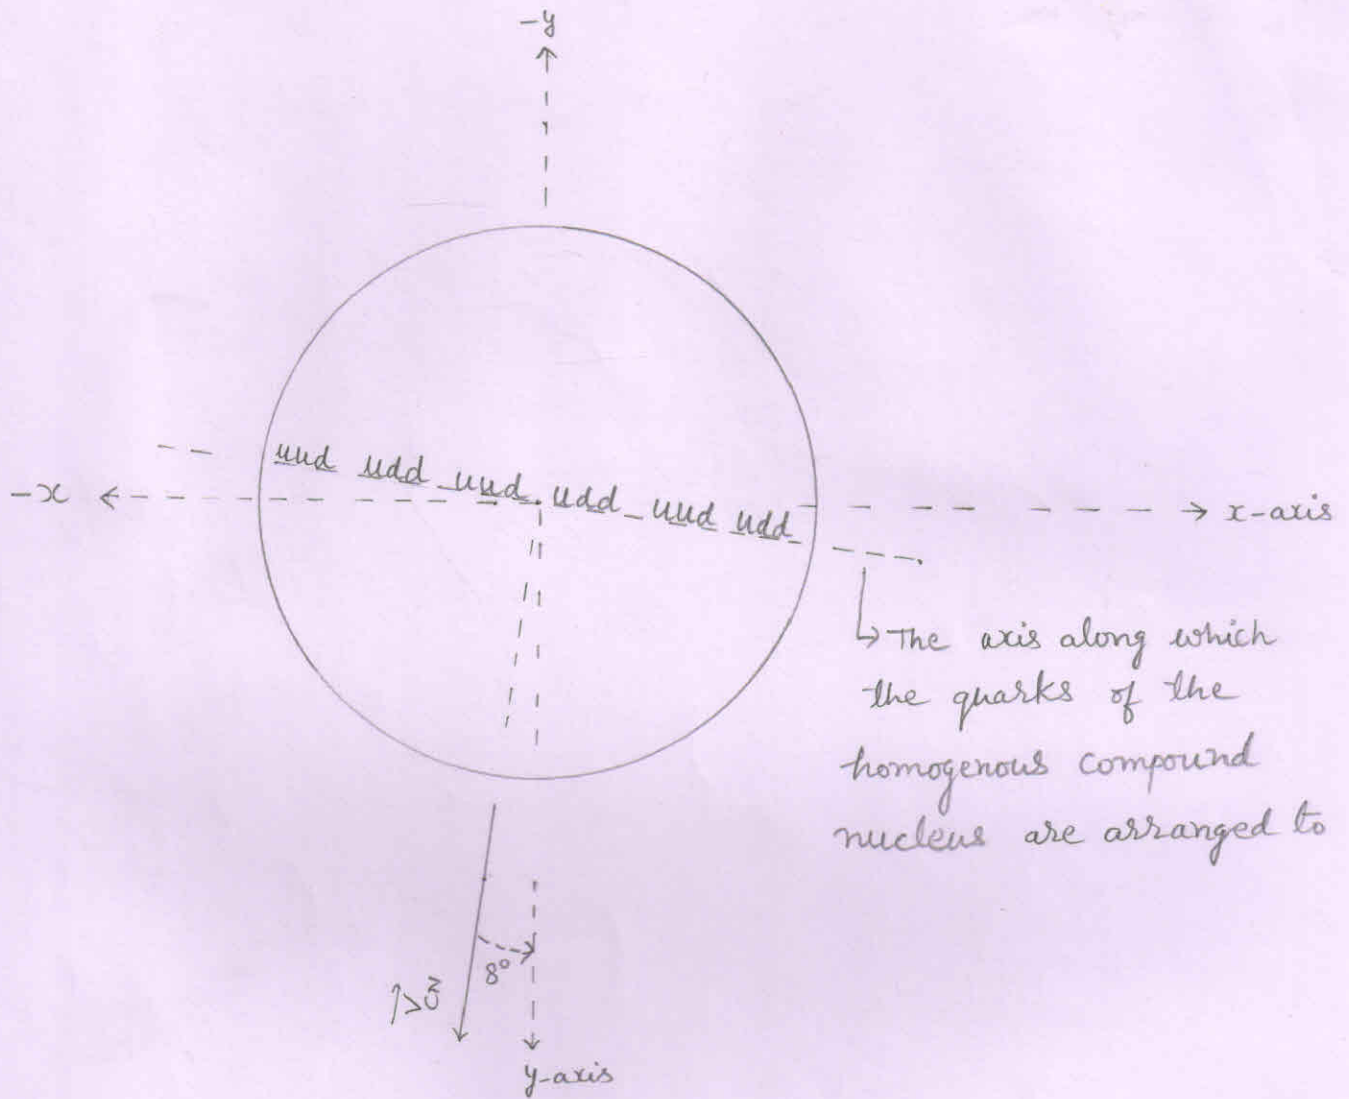 -y
uud udd uud udd uud udd
-x
x-axis
The axis along which
the quarks of the
homogenous compound
nucleus are arranged to
8°
y-axis